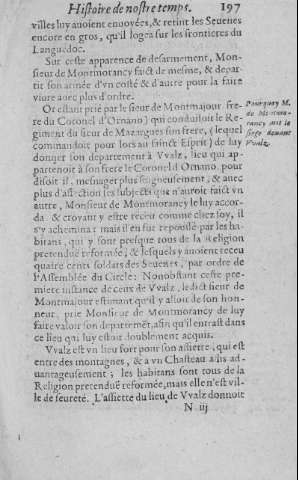 Histoire de nostre temps. 197
villes luy auoient enuoyées, & retint les Seuenes
encore en gros, qu'il logea sur les frontieres du
Languedoc.
Sur ceste apparence de desarmement, Mon-
sieur de Montmorancy faict de mesme, & depar-
tit son armée d'vn costé & d'autre pour la faire
viure auec plus d'ordre.
Or estant prié par le sieur de Montmajour fre-
re du Coronel d'Ornano) qui conduisoit le Re-
giment du sieur de Mazargues son frere, (lequel
commandoit pour lors au sainct Esprit) de luy
donner son departement à Vvalz, lieu qui ap-
partenoit à son frere le Coronel d'Ornano, pour
disoit il, mesnager plus soigneusement, & auec
plus d'affection ses subjects que n'auroit faict vn
autre, Monsieur de Montmorancy le luy accor-
da & croyant y estre receu comme chez soy, il
s'y achemina: mais il en fut repoussé par les ha-
bitans, qui y sont presque tous de la Religion
pretenduë reformée, & lesquels y auoient receu
quatre cents soldats des Seuenes, par ordre de
l'Assemblée du Circle: Nonobstant ceste pre-
miere instance de ceux de Vvalz, ledict sieur de
Montmajour estimant qu'il y alloit de son hon-
neur, prie Monsieur de Montmorancy de luy
faire valoir son departemēt, afin qu'il entrast dans
ce lieu qui luy estoit doublement acquis.
Vvalz est vn lieu fort pour son assiete, qui est
entre des montagnes, & a vn Chasteau assis ad-
uantageusement; les habitans sont tous de la
Religion pretenduë reformée, mais elle n'est vil-
le de seureté. L'assiette du lieu de Vvalz donnoit
N iij
Pourquoy M.
de Montmo-
rancy mit le
siege deuant
Vvalz.